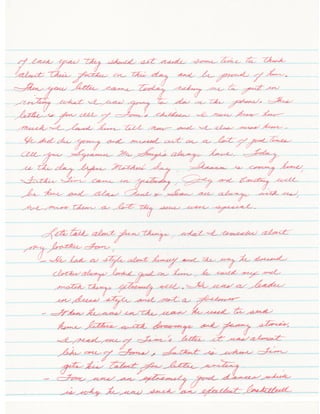 of each year they should set aside some time to think
about their father on this day and be proud of him.
Then your letter came today asking me to put in
writing what I was going to do on the phone. This
letter is for all of Tom's children I now know how
much I loved him till now and I also miss him.
He did die young and missed out on a lot of good times
All you always have. Today
is the day before Mother's Day. is coming home,
Father Tim came in yesterday. and Timothy will
be here and also and are always with us,
we miss them a lot they were special.
Lets talk about fun things, what I remember about
my brother Tom.
- He had a style about himself and the way he dressed
clothes always looked good on him, he could mix and
match things extremely well. He was a leader
in dress style and not a follower
- When he was in the war he used to send
home letters with drawings and funny stories,
I read one of Tim's letter it was almost
like one of Toms, so that is where Tim
gets his talent for letter writing
- Tom was an extremely good dancer which
is why he was such an excellent basketball